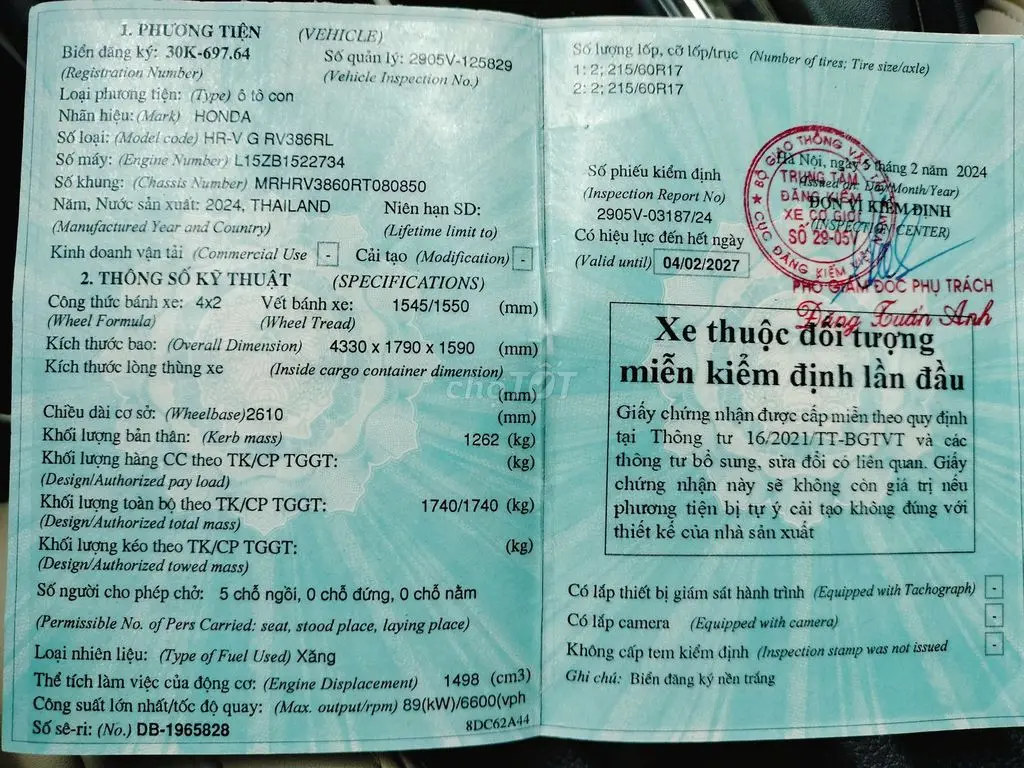 1. PHƯƠNG TIỆN (VEHICLE)
Biển đăng ký: 30K-697.64 Số quản lý: 2905V-125829
(Registration Number) (Vehicle Inspection No.)
Loại phương tiện: (Type) ô tô con
Nhãn hiệu: (Mark) HONDA
Số loại: (Model code) HR-V G RV386RL
Số máy: (Engine Number) L15ZB1522734
Số khung: (Chassis Number) MRHRV3860RT080850
Năm, Nước sản xuất: 2024, THAILAND Niên hạn SD:
(Manufactured Year and Country) (Lifetime limit to)
Kinh doanh vận tải (Commercial Use - Cải tạo (Modification) -
2. THÔNG SỐ KỸ THUẬT (SPECIFICATIONS)
Công thức bánh xe: 4x2 Vết bánh xe: 1545/1550 (mm)
(Wheel Formula) (Wheel Tread)
Kích thước bao: (Overall Dimension) 4330 x 1790 x 1590 (mm)
Kích thước lòng thùng xe (Inside cargo container dimension)
(mm)
Chiều dài cơ sở: (Wheelbase) 2610 (mm)
Khối lượng bản thân: (Kerb mass) 1262 (kg)
Khối lượng hàng CC theo TK/CP TGGT: (kg)
(Design/Authorized pay load)
Khối lượng toàn bộ theo TK/CP TGGT: 1740/1740 (kg)
(Design/Authorized total mass)
Khối lượng kéo theo TK/CP TGGT: (kg)
(Design/Authorized towed mass)
Số người cho phép chở: 5 chỗ ngồi, 0 chỗ đứng, 0 chỗ nằm
(Permissible No. of Pers Carried: seat, stood place, laying place)
Loại nhiên liệu: (Type of Fuel Used) Xăng
Thể tích làm việc của động cơ: (Engine Displacement) 1498 (cm3)
Công suất lớn nhất/tốc độ quay: (Max. output/rpm) 89(kW)/6600(vph
Số sê-ri: (No.) DB-1965828 8DC62A44
Số lượng lốp, cỡ lốp/trục (Number of tires; Tire size/axle)
1: 2; 215/60R17
2: 2; 215/60R17
Hà Nội, ngày 5 tháng 2 năm 2024
Số phiếu kiểm định (Issued on: Day/Month/Year)
(Inspection Report No) ĐƠN VỊ KIỂM ĐỊNH
2905V-03187/24 (INSPECTION CENTER)
Có hiệu lực đến hết ngày
(Valid until) 04/02/2027
BỘ GIAO THÔNG VẬN TẢI
TRUNG TÂM
ĐĂNG KIỂM
XE CƠ GIỚI
SỐ 29-05V
CỤC ĐĂNG KIỂM
PHÓ GIÁM ĐỐC PHỤ TRÁCH
Đặng Tuấn Anh
Xe thuộc đối tượng
miễn kiểm định lần đầu
Giấy chứng nhận được cấp miễn theo quy định
tại Thông tư 16/2021/TT-BGTVT và các
thông tư bổ sung, sửa đổi có liên quan. Giấy
chứng nhận này sẽ không còn giá trị nếu
phương tiện bị tự ý cải tạo không đúng với
thiết kế của nhà sản xuất
Có lắp thiết bị giám sát hành trình (Equipped with Tachograph) -
Có lắp camera (Equipped with camera) -
Không cấp tem kiểm định (Inspection stamp was not issued -
Ghi chú: Biển đăng ký nền trắng
chợTỐT